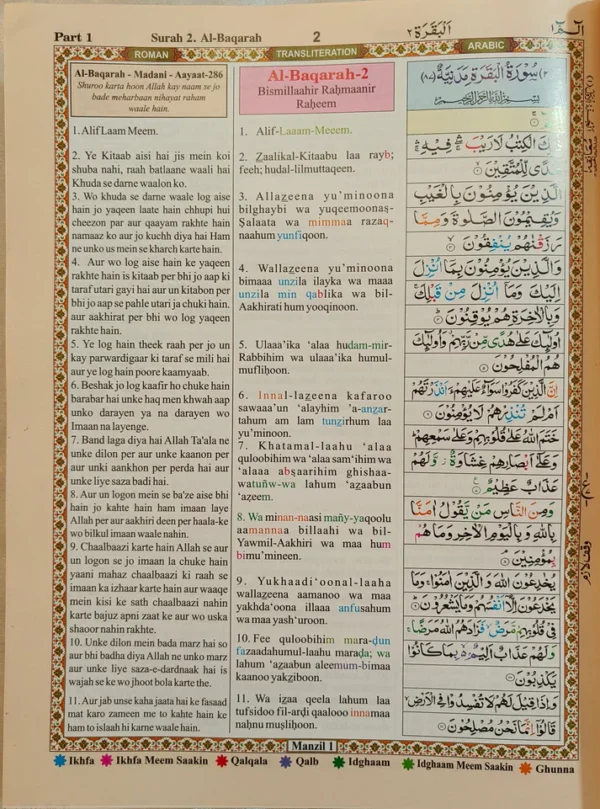 Part 1 Surah 2. Al-Baqarah 2 اَلْبَقَرَة ٢ الٓمّٓ ١
ROMAN TRANSLITERATION ARABIC
Al-Baqarah - Madani - Aayaat-286
Shuroo karta hoon Allah kay naam se jo
bade meharbaan nihayat raham
waale hain.
1. Alif Laam Meem.
2. Ye Kitaab aisi hai jis mein koi
shuba nahi, raah batlaane waali hai
Khuda se darne waalon ko.
3. Wo khuda se darne waale log aise
hain jo yaqeen laate hain chhupi hui
cheezon par aur qaayam rakhte hain
namaaz ko aur jo kuchh diya hai Ham
ne unko us mein se kharch karte hain.
4. Aur wo log aise hain ke yaqeen
rakhte hain is kitaab per bhi jo aap ki
taraf utari gayi hai aur un kitabon per
bhi jo aap se pahle utari ja chuki hain.
aur aakhirat per bhi wo log yaqeen
rakhte hain.
5. Ye log hain theek raah per jo un
kay parwardigaar ki taraf se mili hai
aur ye log hain poore kaamyaab.
6. Beshak jo log kaafir ho chuke hain
barabar hai unke haq men khwah aap
unko darayen ya na darayen wo
Imaan na layenge.
7. Band laga diya hai Allah Ta'ala ne
unke dilon per aur unke kaanon per
aur unki aankhon per perda hai aur
unke liye saza badi hai.
8. Aur un logon mein se ba'ze aise bhi
hain jo kahte hain ham imaan laye
Allah per aur aakhiri deen per haala-ke
wo bilkul imaan waale nahin.
9. Chaalbaazi karte hain Allah se aur
un logon se jo imaan la chuke hain
yaani mahaz chaalbaazi ki raah se
imaan ka izhaar karte hain aur waaqe
mein kisi ke sath chaalbaazi nahin
karte bajuz apni zaat ke aur wo uska
shaoor nahin rakhte.
10. Unke dilon mein bada marz hai so
aur bhi badha diya Allah ne unko marz
aur unke liye saza-e-dardnaak hai is
wajah se ke wo jhoot bola karte the.
11. Aur jab unse kaha jaata hai ke fasaad
mat karo zameen me to kahte hain ke
ham to islaah hi karne waale hain.
Al-Baqarah-2
Bismillaahir Raḥmaanir
Raḥeem
1. Alif-Laaam-Meeem.
2. Z̲aalikal-Kitaabu laa rayb;
feeh; hudal-lilmuttaqeen.
3. Allaz̲eena yu'minoona
bilghaybi wa yuqeemoonaṣ-
Ṣalaata wa mimmaa razaq-
naahum yunfiqoon.
4. Wallaz̲eena yu'minoona
bimaaa unzila ilayka wa maaa
unzila min qablika wa bil-
Aakhirati hum yooqinoon.
5. Ulaaa'ika 'alaa hudam-mir-
Rabbihim wa ulaaa'ika humul-
mufliḥoon.
6. Innal-laz̲eena kafaroo
sawaaa'un 'alayhim 'a-anz̲ar-
tahum am lam tunz̲irhum laa
yu'minoon.
7. Khatamal-laahu 'alaa
quloobihim wa 'alaa sam'ihim wa
'alaaa abṣaarihim ghishaa-
watuñw-wa lahum 'az̲aabun
'aẓeem.
8. Wa minan-naasi mañy-yaqoolu
aamannaa billaahi wa bil-
Yawmil-Aakhiri wa maa hum
bimu'mineen.
9. Yukhaadi'oonal-laaha
wallaz̲eena aamanoo wa maa
yakhda'oona illaaa anfusahum
wa maa yash'uroon.
10. Fee quloobihim maraḍun
fazaadahumul-laahu maraḍa; wa
lahum 'az̲aabun aleemum-bimaa
kaanoo yakz̲iboon.
11. Wa iz̲aa qeela lahum laa
tufsidoo fil-arḍi qaalooo innamaa
naḥnu muṣliḥoon.
سُوْرَةُ الْبَقَرَةِ مَدَنِيَّةٌ (٨٧)
بِسْمِ اللّٰهِ الرَّحْمٰنِ الرَّحِيْمِ
كَ الْكِتٰبُ لَا رَيْبَ فِيْهِ
دًى لِّلْمُتَّقِيْنَ
الَّذِيْنَ يُؤْمِنُوْنَ بِالْغَيْبِ
وَيُقِيْمُوْنَ الصَّلٰوةَ وَمِمَّا
رَزَقْنٰهُمْ يُنْفِقُوْنَ
وَالَّذِيْنَ يُؤْمِنُوْنَ بِمَآ اُنْزِلَ
اِلَيْكَ وَمَآ اُنْزِلَ مِنْ قَبْلِكَ
وَبِالْاٰخِرَةِ هُمْ يُوْقِنُوْنَ
اُولٰٓئِكَ عَلٰى هُدًى مِّنْ رَّبِّهِمْ وَاُولٰٓئِكَ
هُمُ الْمُفْلِحُوْنَ
اِنَّ الَّذِيْنَ كَفَرُوْا سَوَآءٌ عَلَيْهِمْ ءَاَنْذَرْتَهُمْ
اَمْ لَمْ تُنْذِرْهُمْ لَا يُؤْمِنُوْنَ
خَتَمَ اللّٰهُ عَلٰى قُلُوْبِهِمْ وَعَلٰى سَمْعِهِمْ
وَعَلٰٓى اَبْصَارِهِمْ غِشَاوَةٌ وَّلَهُمْ
عَذَابٌ عَظِيْمٌ
وَمِنَ النَّاسِ مَنْ يَّقُوْلُ اٰمَنَّا
بِاللّٰهِ وَبِالْيَوْمِ الْاٰخِرِ وَمَا هُمْ
بِمُؤْمِنِيْنَ
يُخٰدِعُوْنَ اللّٰهَ وَالَّذِيْنَ اٰمَنُوْا وَمَا
يَخْدَعُوْنَ اِلَّآ اَنْفُسَهُمْ وَمَا يَشْعُرُوْنَ
فِيْ قُلُوْبِهِمْ مَّرَضٌ فَزَادَهُمُ اللّٰهُ مَرَضًا
وَلَهُمْ عَذَابٌ اَلِيْمٌ بِمَا كَانُوْا
يَكْذِبُوْنَ
وَاِذَا قِيْلَ لَهُمْ لَا تُفْسِدُوْا فِي الْاَرْضِ
قَالُوْٓا اِنَّمَا نَحْنُ مُصْلِحُوْنَ
Manzil 1
Ikhfa Ikhfa Meem Saakin Qalqala Qalb Idghaam Idghaam Meem Saakin Ghunna